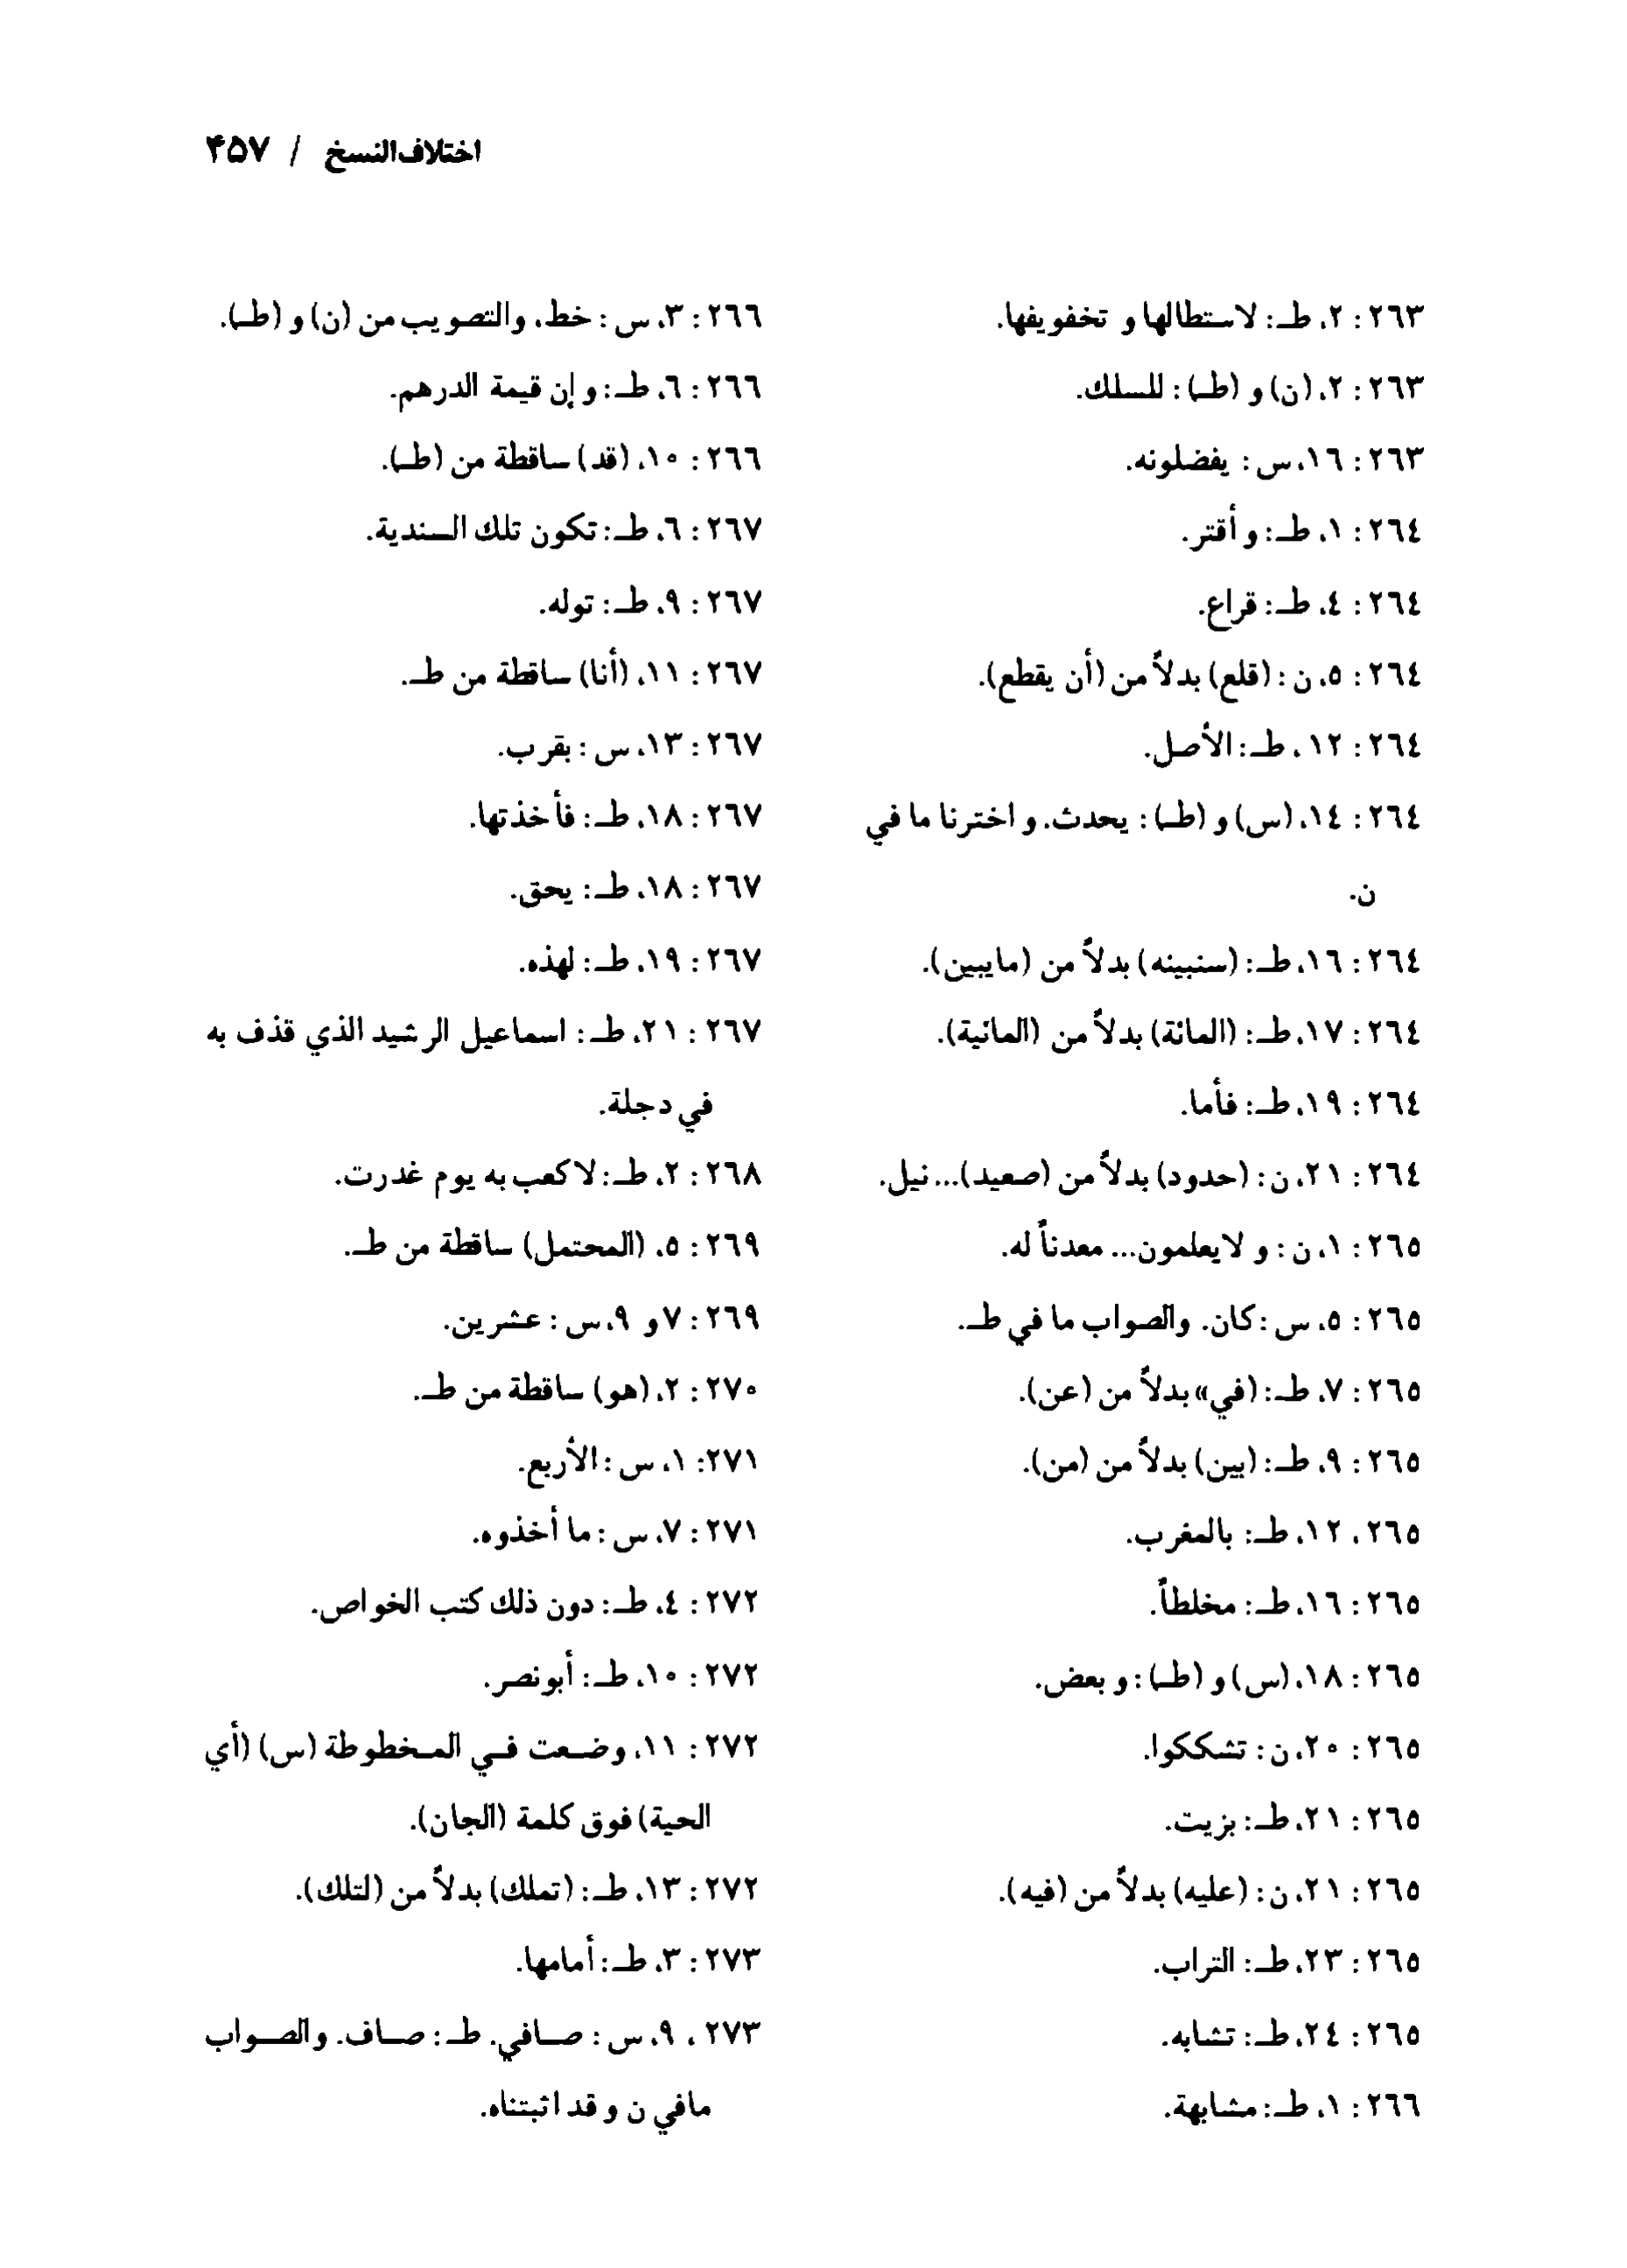 اختلاف النسخ / ۴۵۷
٢٦٣: ٢، طـ: لاستطالها و تخفويفها.
٢٦٣: ٢، (ن) و (طـ): للسلك.
٢٦٣: ١٦، س: يفضلونه.
٢٦٤: ١، طـ: و أقتر.
٢٦٤: ٤، طـ: قراع.
٢٦٤: ٥، ن: (قلع) بدلاً من (أن يقطع).
٢٦٤: ١٢، طـ: الأصل.
٢٦٤: ١٤، (س) و (طـ): يحدث. و اخترنا ما في
ن.
٢٦٤: ١٦، طـ: (سنبينه) بدلاً من (مايبين).
٢٦٤: ١٧، طـ: (المانة) بدلاً من (المانية).
٢٦٤: ١٩، طـ: فأما.
٢٦٤: ٢١، ن: (حدود) بدلاً من (صعيد)... نيل.
٢٦٥: ١، ن: و لايعلمون... معدناً له.
٢٦٥: ٥، س: كان. والصواب ما في طـ.
٢٦٥: ٧، طـ: (في» بدلاً من (عن).
٢٦٥: ٩، طـ: (بين) بدلاً من (من).
٢٦٥، ١٢، طـ: بالمغرب.
٢٦٥: ١٦، طـ: مخلطاً.
٢٦٥: ١٨، (س) و (طـ): و بعض.
٢٦٥: ٢٠، ن: تشككوا.
٢٦٥: ٢١، طـ: بزيت.
٢٦٥: ٢١، ن: (عليه) بدلاً من (فيه).
٢٦٥: ٢٣، طـ: التراب.
٢٦٥: ٢٤، طـ: تشابه.
٢٦٦: ١، طـ: مشابهة.
٢٦٦: ٣، س: خط، والتصويب من (ن) و (طـ).
٢٦٦: ٦، طـ: و إن قيمة الدرهم.
٢٦٦: ١٠، (قد) ساقطة من (طـ).
٢٦٧: ٦، طـ: تكون تلك السندية.
٢٦٧: ٩، طـ: توله.
٢٦٧: ١١، (أنا) ساقطة من طـ.
٢٦٧: ١٣، س: بقرب.
٢٦٧: ١٨، طـ: فأخذتها.
٢٦٧: ١٨، طـ: يحق.
٢٦٧: ١٩، طـ: لهذه.
٢٦٧: ٢١، طـ: اسماعيل الرشيد الذي قذف به
في دجلة.
٢٦٨: ٢، طـ: لاكعب به يوم غدرت.
٢٦٩: ٥، (المحتمل) ساقطة من طـ.
٢٦٩: ٧ و ٩، س: عشرين.
٢٧٠: ٢، (هو) ساقطة من طـ.
٢٧١: ١، س: الأربع.
٢٧١: ٧، س: ما أخذوه.
٢٧٢: ٤، طـ: دون ذلك كتب الخواص.
٢٧٢: ١٠، طـ: أبونصر.
٢٧٢: ١١، وضعت في المخطوطة (س) (أي
الحية) فوق كلمة (الجان).
٢٧٢: ١٣، طـ: (تملك) بدلاً من (لتلك).
٢٧٣: ٣، طـ: أمامها.
٢٧٣، ٩، س: صافي. طـ: صاف. والصواب
مافي ن و قد اثبتناه.